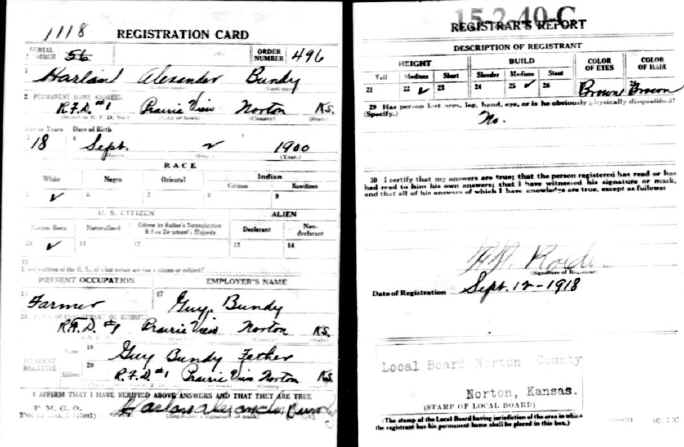 1118 REGISTRATION CARD
SERIAL NUMBER 56 ORDER NUMBER 496
1 Harland Alexander Bundy
2 PERMANENT HOME ADDRESS:
R.F.D. #1 Prairie View Norton KS.
Age in Years Date of Birth
18 Sept. 2 1900
RACE
White Negro Oriental Indian
Citizen Noncitizen
5 ✓ 6 7 8 9
U. S. CITIZEN ALIEN
Native Born Naturalized Citizen by Father's Naturalization Before Registrant's Majority Declarant Non-declarant
10 ✓ 11 12 13 14
15
If not a citizen of the U. S., of what nation are you a citizen or subject?
PRESENT OCCUPATION EMPLOYER'S NAME
16 Farmer 17 Guy Bundy
18 PLACE OF EMPLOYMENT OR BUSINESS:
R.F.D. #1 Prairie View Norton KS.
NEAREST RELATIVE
Name 19 Guy Bundy Father
Address 20 R.F.D. #1 Prairie View Norton KS.
I AFFIRM THAT I HAVE VERIFIED ABOVE ANSWERS AND THAT THEY ARE TRUE
P. M. G. O.
Harland Alexander Bundy
15-2-40-C
REGISTRAR'S REPORT
DESCRIPTION OF REGISTRANT
HEIGHT BUILD COLOR OF EYES COLOR OF HAIR
Tall Medium Short Slender Medium Stout
21 22 ✓ 23 24 25 ✓ 26 27 Brown 28 Brown
29 Has person lost arm, leg, hand, eye, or is he obviously physically disqualified?
(Specify.)
No.
30 I certify that my answers are true; that the person registered has read or has
had read to him his own answers; that I have witnessed his signature or mark,
and that all of his answers of which I have knowledge are true, except as follows:
(Signature of Registrar)
Date of Registration Sept. 12-1918
Local Board Norton County
Norton, Kansas.
(STAMP OF LOCAL BOARD)
(The stamp of the Local Board having jurisdiction of the area in which
the registrant has his permanent home shall be placed in this box.)